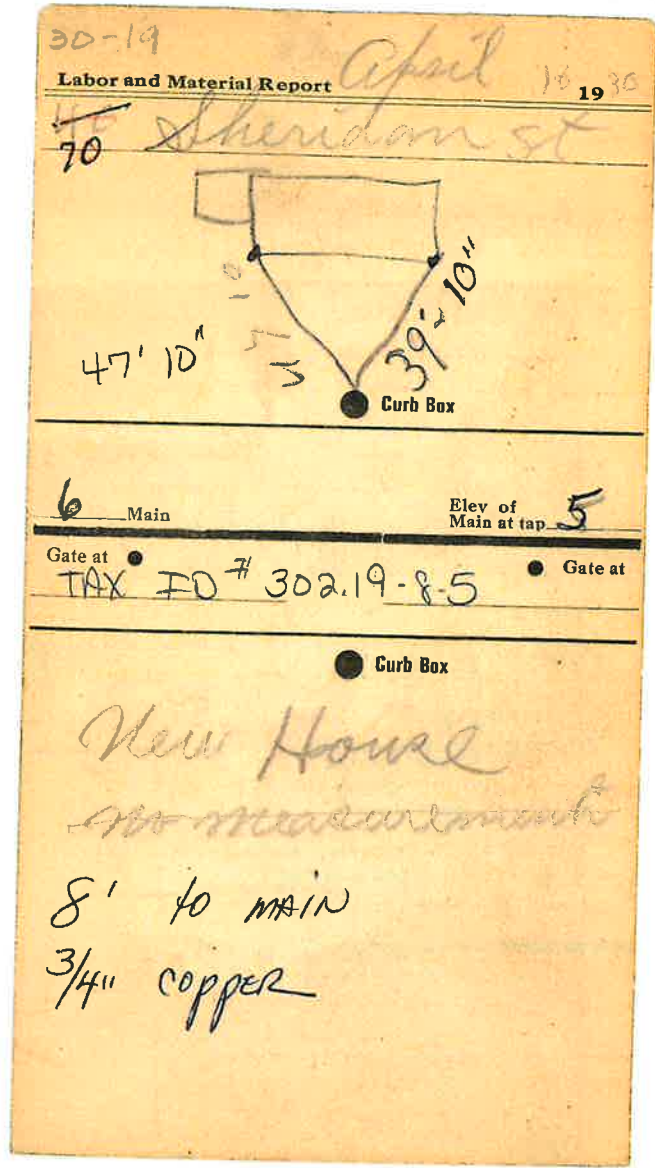 30-19
Labor and Material Report April 16 1930
70 Sheridan St
47 10
39' 10"
47' 10"
Curb Box
6 Main
Elev of
Main at tap 5
Gate at
Gate at
TAX ID # 302.19-8-5
Curb Box
New House
No measurements
8' to MAIN
3/4" COPPER